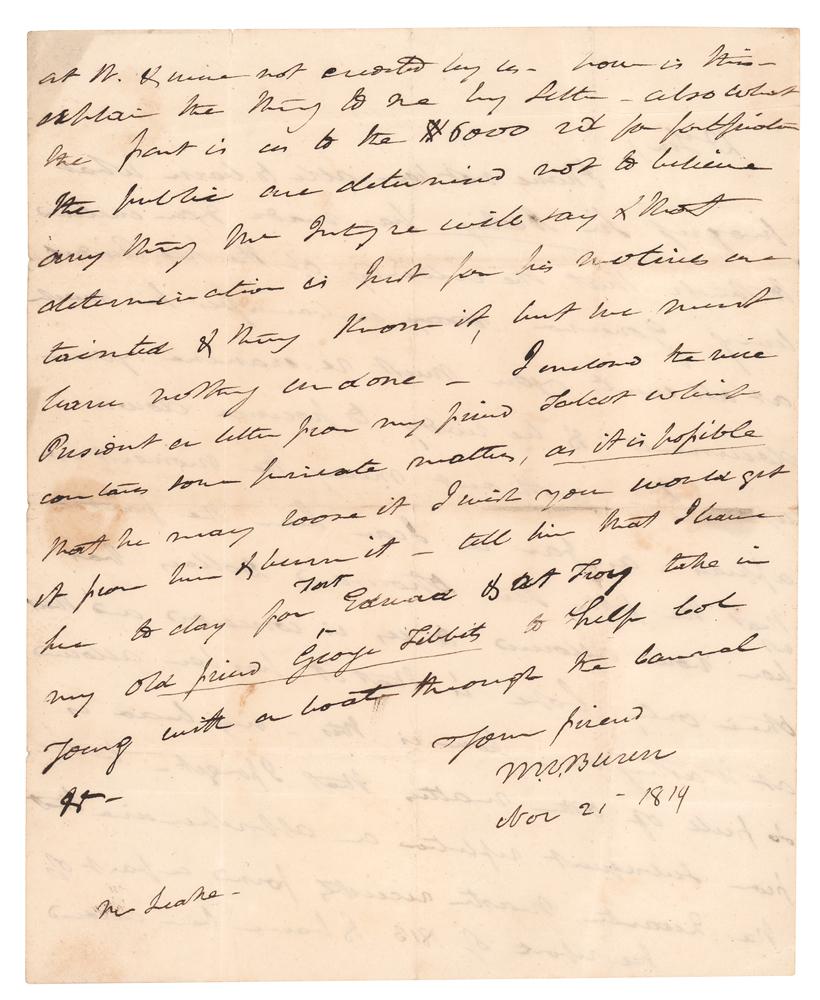 at N. & mine not credited by us – how is this –
explain the thing to me by letter – also what
the fact is as to the $6000 for fortification
the public are determined not to believe
any thing Mc Intyre will say & that
determination is Just for his motives are
tainted & they know it, but we must
leave nothing undone – I enclosed the vice
President a letter from my friend Talcot which
contains some private matter, as it is possible
that he may loose it I wish you would get
it from him & burn it – tell him that I leave
here to day for Fort Edward & at Troy take in
my old friend George Tibbits to help Col
Young with a boat through the Cannal
&c –
Your friend
M.V.Buren
Nov 21 1819
Mr Leake –